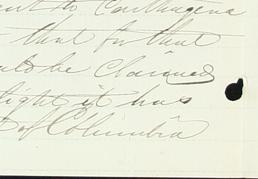 to Carthagena
that for that
be claimed
light it has
of Columbia